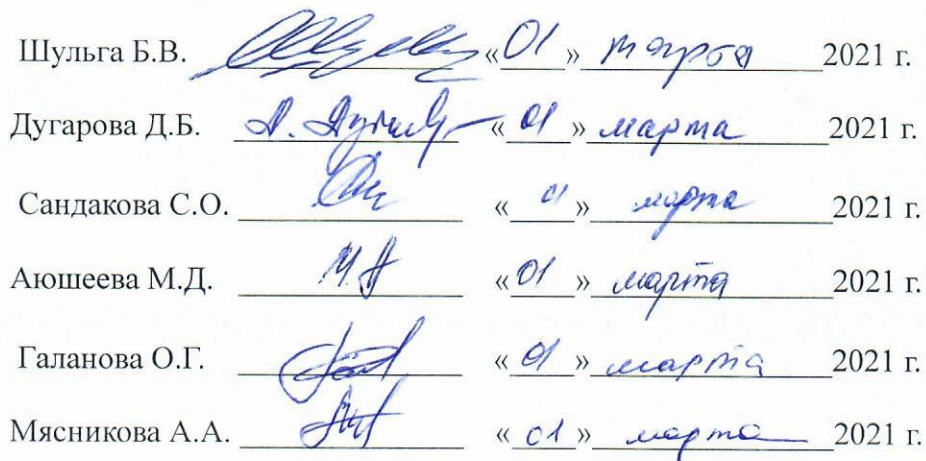 Шульга Б.В. «01» марта 2021 г.
Дугарова Д.Б. «01» марта 2021 г.
Сандакова С.О. «01» марта 2021 г.
Аюшеева М.Д. «01» марта 2021 г.
Галанова О.Г. «01» марта 2021 г.
Мясникова А.А. «01» марта 2021 г.